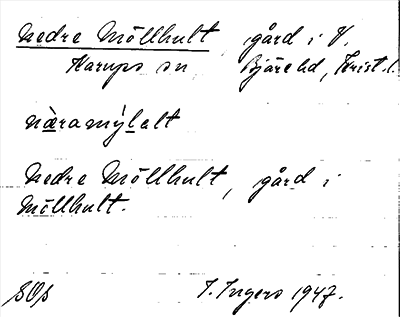 Nedre Möllhult gård i V.
Karups sn Bjäre hd, Krist. l.
næramýlalt
Nedre Möllhult, gård i
Möllhult.
SOS I. Ingers 1947.